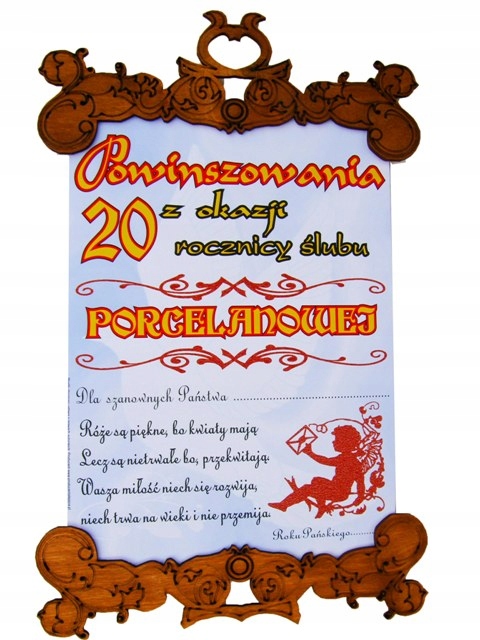 Powinszowania
20 z okazji
rocznicy ślubu
PORCELANOWEJ
Dla szanownych Państwa ........................................
Róże są piękne, bo kwiaty mają
Lecz są nietrwałe bo, przekwitają.
Wasza miłość niech się rozwija,
niech trwa na wieki i nie przemija.
Roku Pańskiego.........